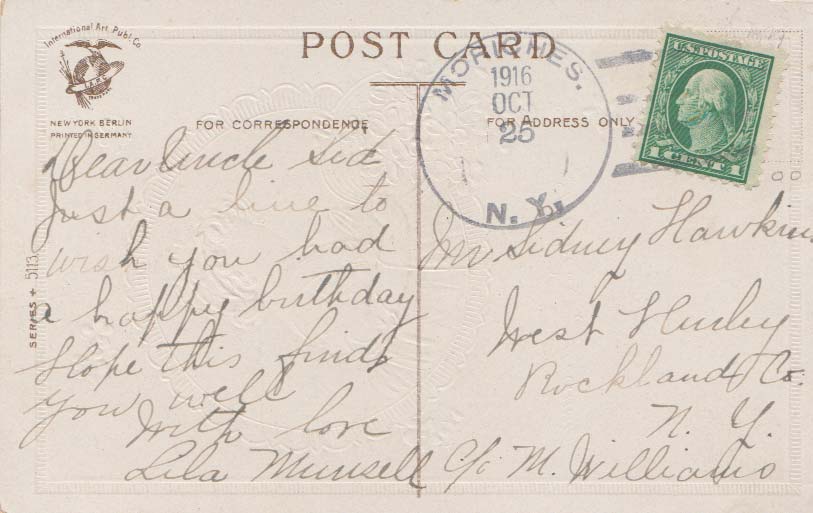 International Art Publ. Co
NEW YORK BERLIN
PRINTED IN GERMANY
POST CARD
FOR CORRESPONDENCE
FOR ADDRESS ONLY
MORICHES.
1916
OCT
25
N. Y.
U.S. POSTAGE
1 CENT 1
SERIES 5113
Dear Uncle Sid
Just a line to
wish you had
a happy birthday
Hope this finds
you well
With love
Lila Munsell
Mr Sidney Hawkins
West Hurley
Rockland Co.
N. Y.
c/o M. Williams